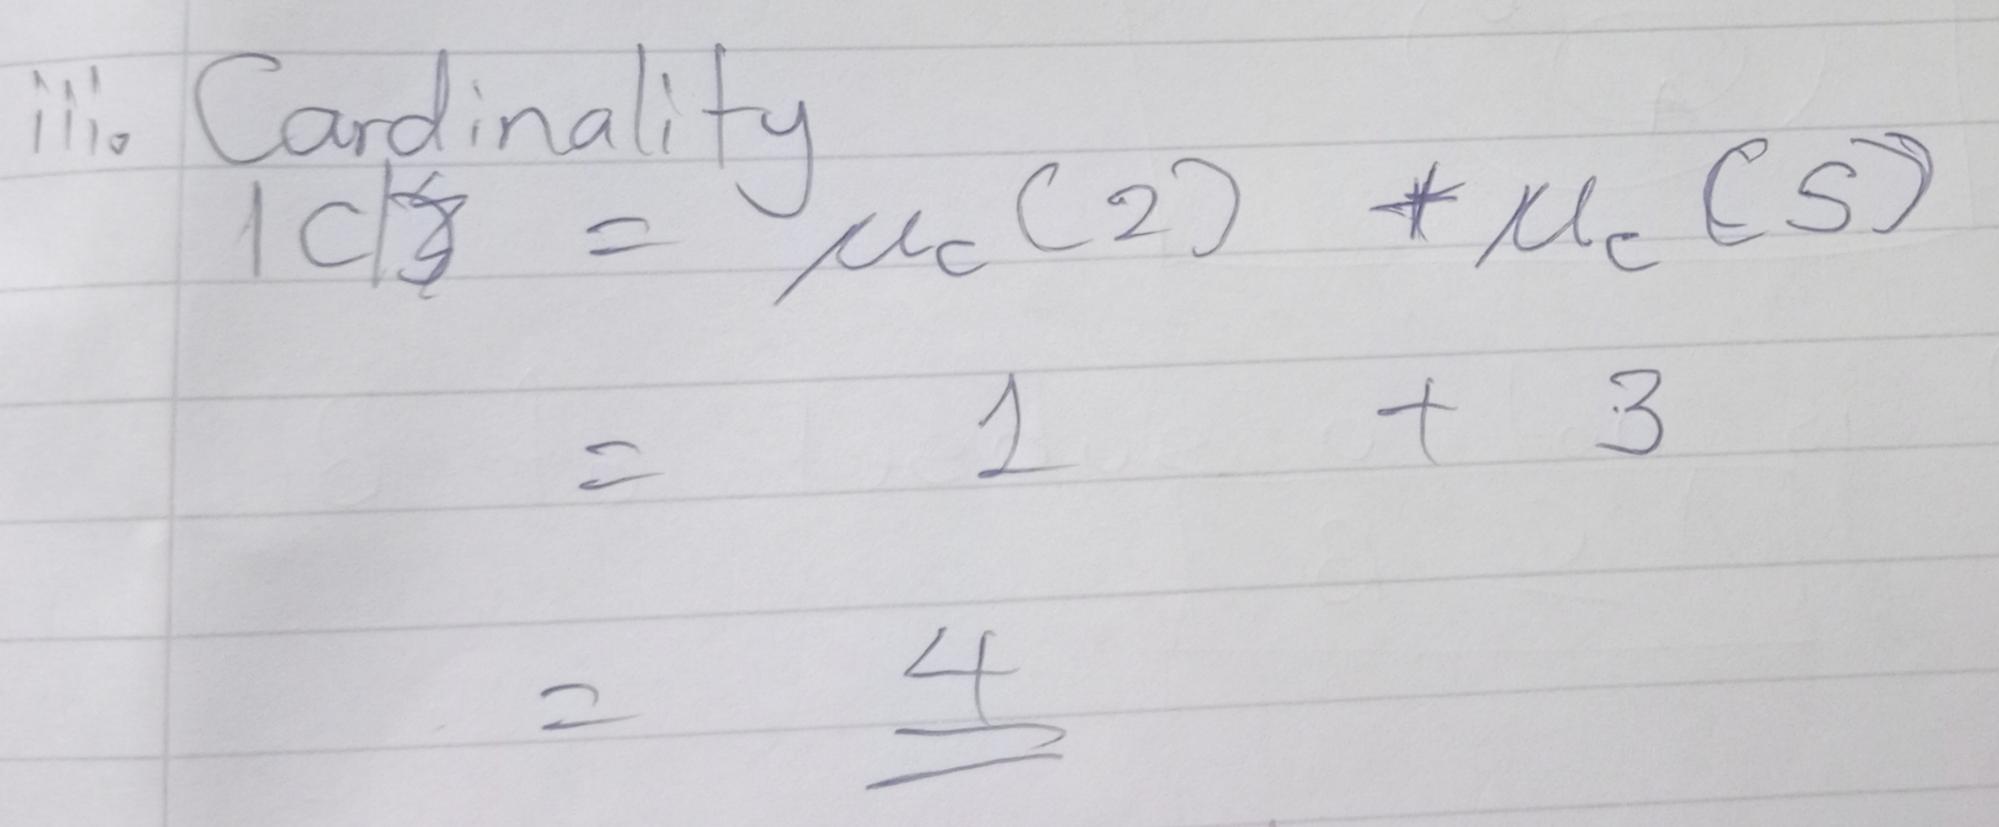 iii. Cardinality
|C| = μc (2) + μc (5)
= 1 + 3
= 4